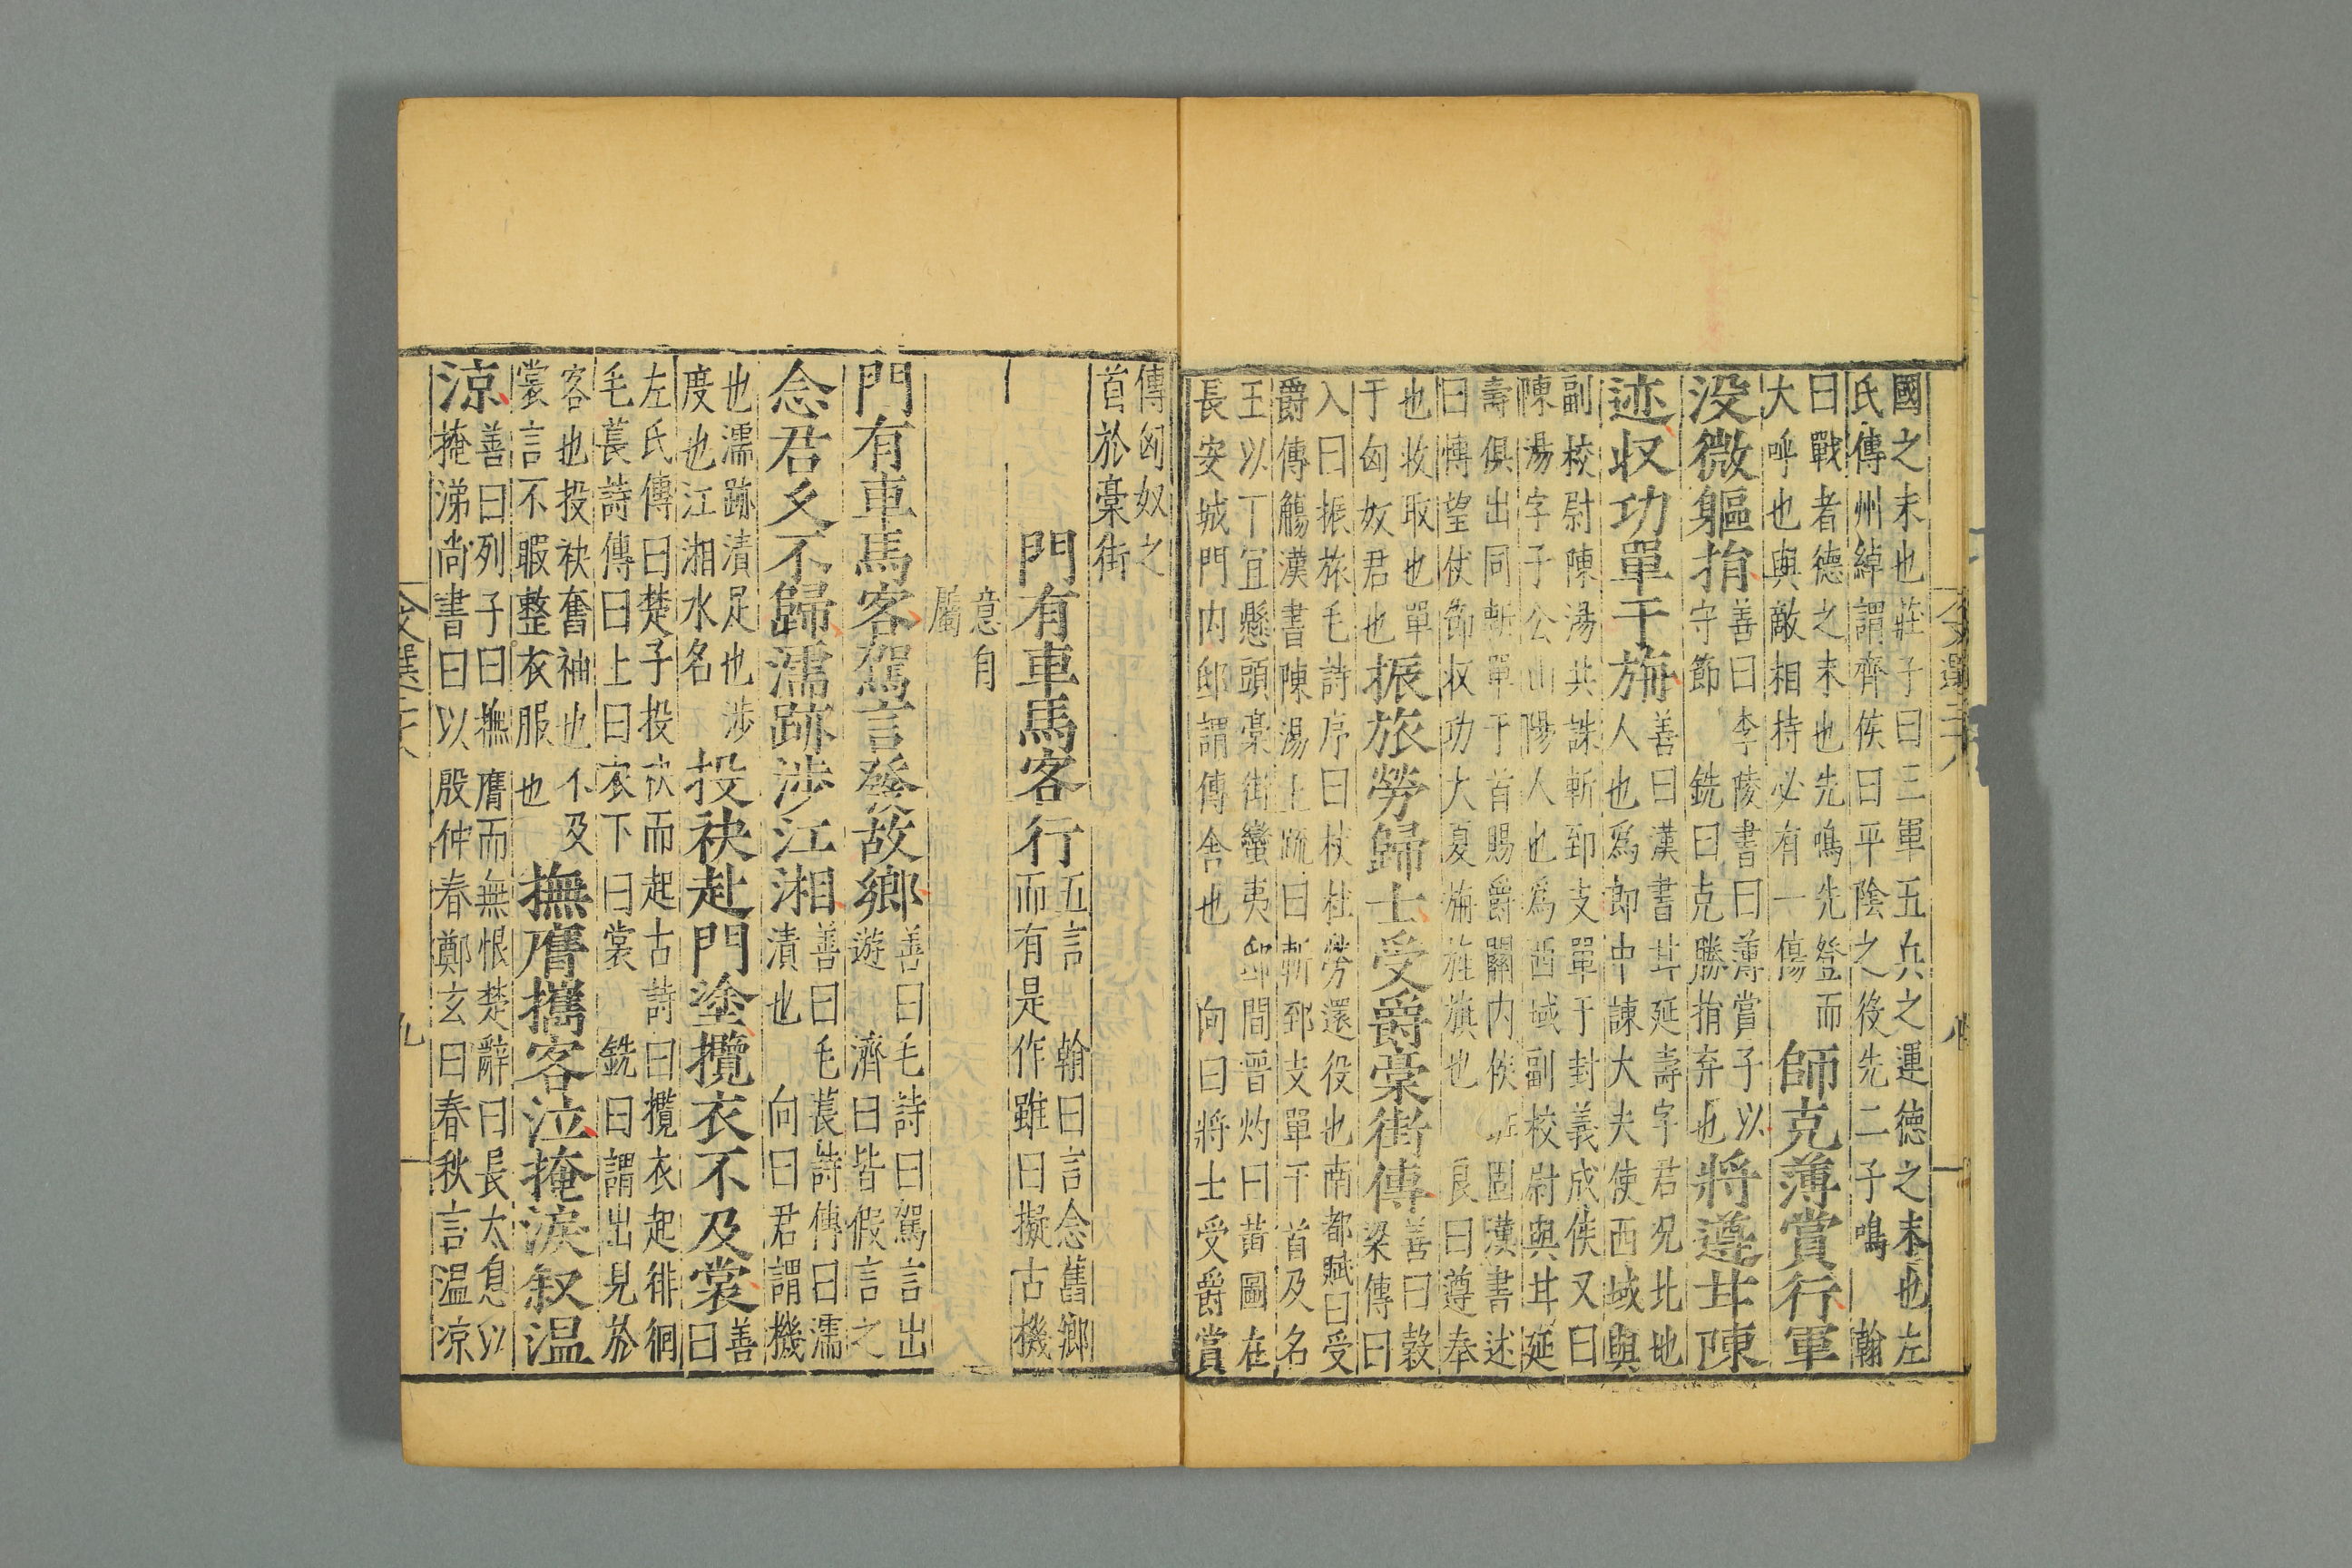 國之末也莊子曰三軍五兵之運徳之末也左
氏傳州綽謂齊侯曰平陰之後先二子鳴 翰
曰戰者德之末也先鳴先登而
大呼也與敵相持必有一傷
師克薄賞行軍
没微軀捐
善曰李陵書曰薄賞子以
守節 銑曰克勝捐弃也
將遵甘陳
迹収功單于旃
善曰漢書甘延壽字君况北地
人也爲郎中諫大夫使西域與
副校尉陳湯共誅斬郅支單于封義成侯又曰
陳湯字子公山陽人也爲西域副校尉與甘延
壽俱出同斬單于首賜爵關内侯 班固漢書述
曰博望仗節収功大夏旃旌旗也 良曰遵奉
也收取也單
于匈奴君也
振旅勞歸士受爵槀街傳
善曰穀
梁傳曰
入曰振旅毛詩序曰杕杜勞還役也南都賦曰受
爵傳觴漢書陳湯上疏曰斬郅支單于首及名
王以下宜懸頭槀街蠻夷邸間晋灼曰黄圖在
長安城門内邸謂傳舍也 向曰將士受爵賞
文選二十八 八
傳匈奴之
首於槀街
門有車馬客行
五言 翰曰言念舊鄉
而有是作雖曰擬古機
意自
屬
門有車馬客駕言發故鄉
善曰毛詩曰駕言出
遊 濟曰皆假言之
念君久不歸濡跡涉江湘
善曰毛萇詩傳曰濡
漬也 向曰君謂機
也濡跡漬足也涉
度也江湘水名
投袂赴門塗攬衣不及裳
善
曰
左氏傳曰楚子投袂而起古詩曰攬衣起徘徊
毛萇詩傳曰上曰衣下曰裳 銑曰謂出見於
客也投袂奮袖也不及
裳言不暇整衣服也
撫膺攜客泣掩淚叙温
涼
善曰列子曰撫膺而無恨楚辭曰長太息以
掩涕尚書曰以殷仲春鄭玄曰春秋言温凉
文選二十八 九